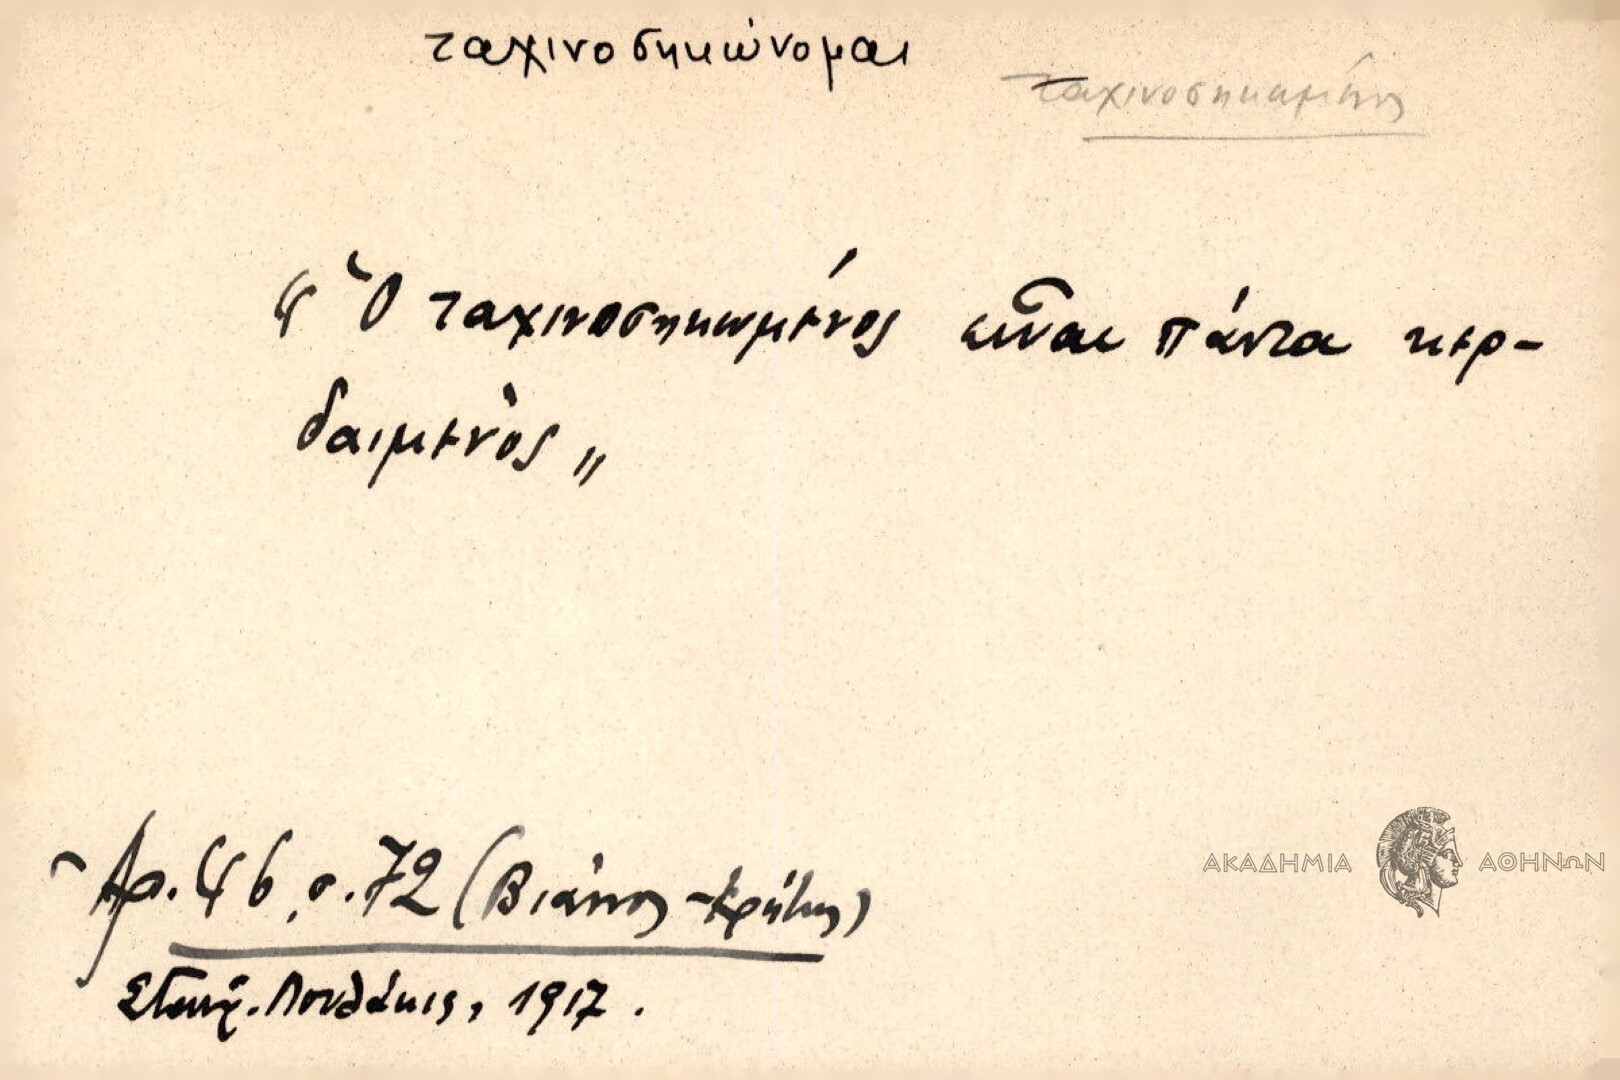 ταχινοσηκώνομαι
ταχινοσηκωμένος
«Ὁ ταχινοσηκωμένος εἶναι πάντα κερ-
δαιμενὸς„
Ἀρ. 46, σ. 72 (Βιάννος - Κρήτης)
Σταυρ. Λουλάκις, 1917.
ΑΚΑΔΗΜΙΑ ΑΘΗΝΩΝ